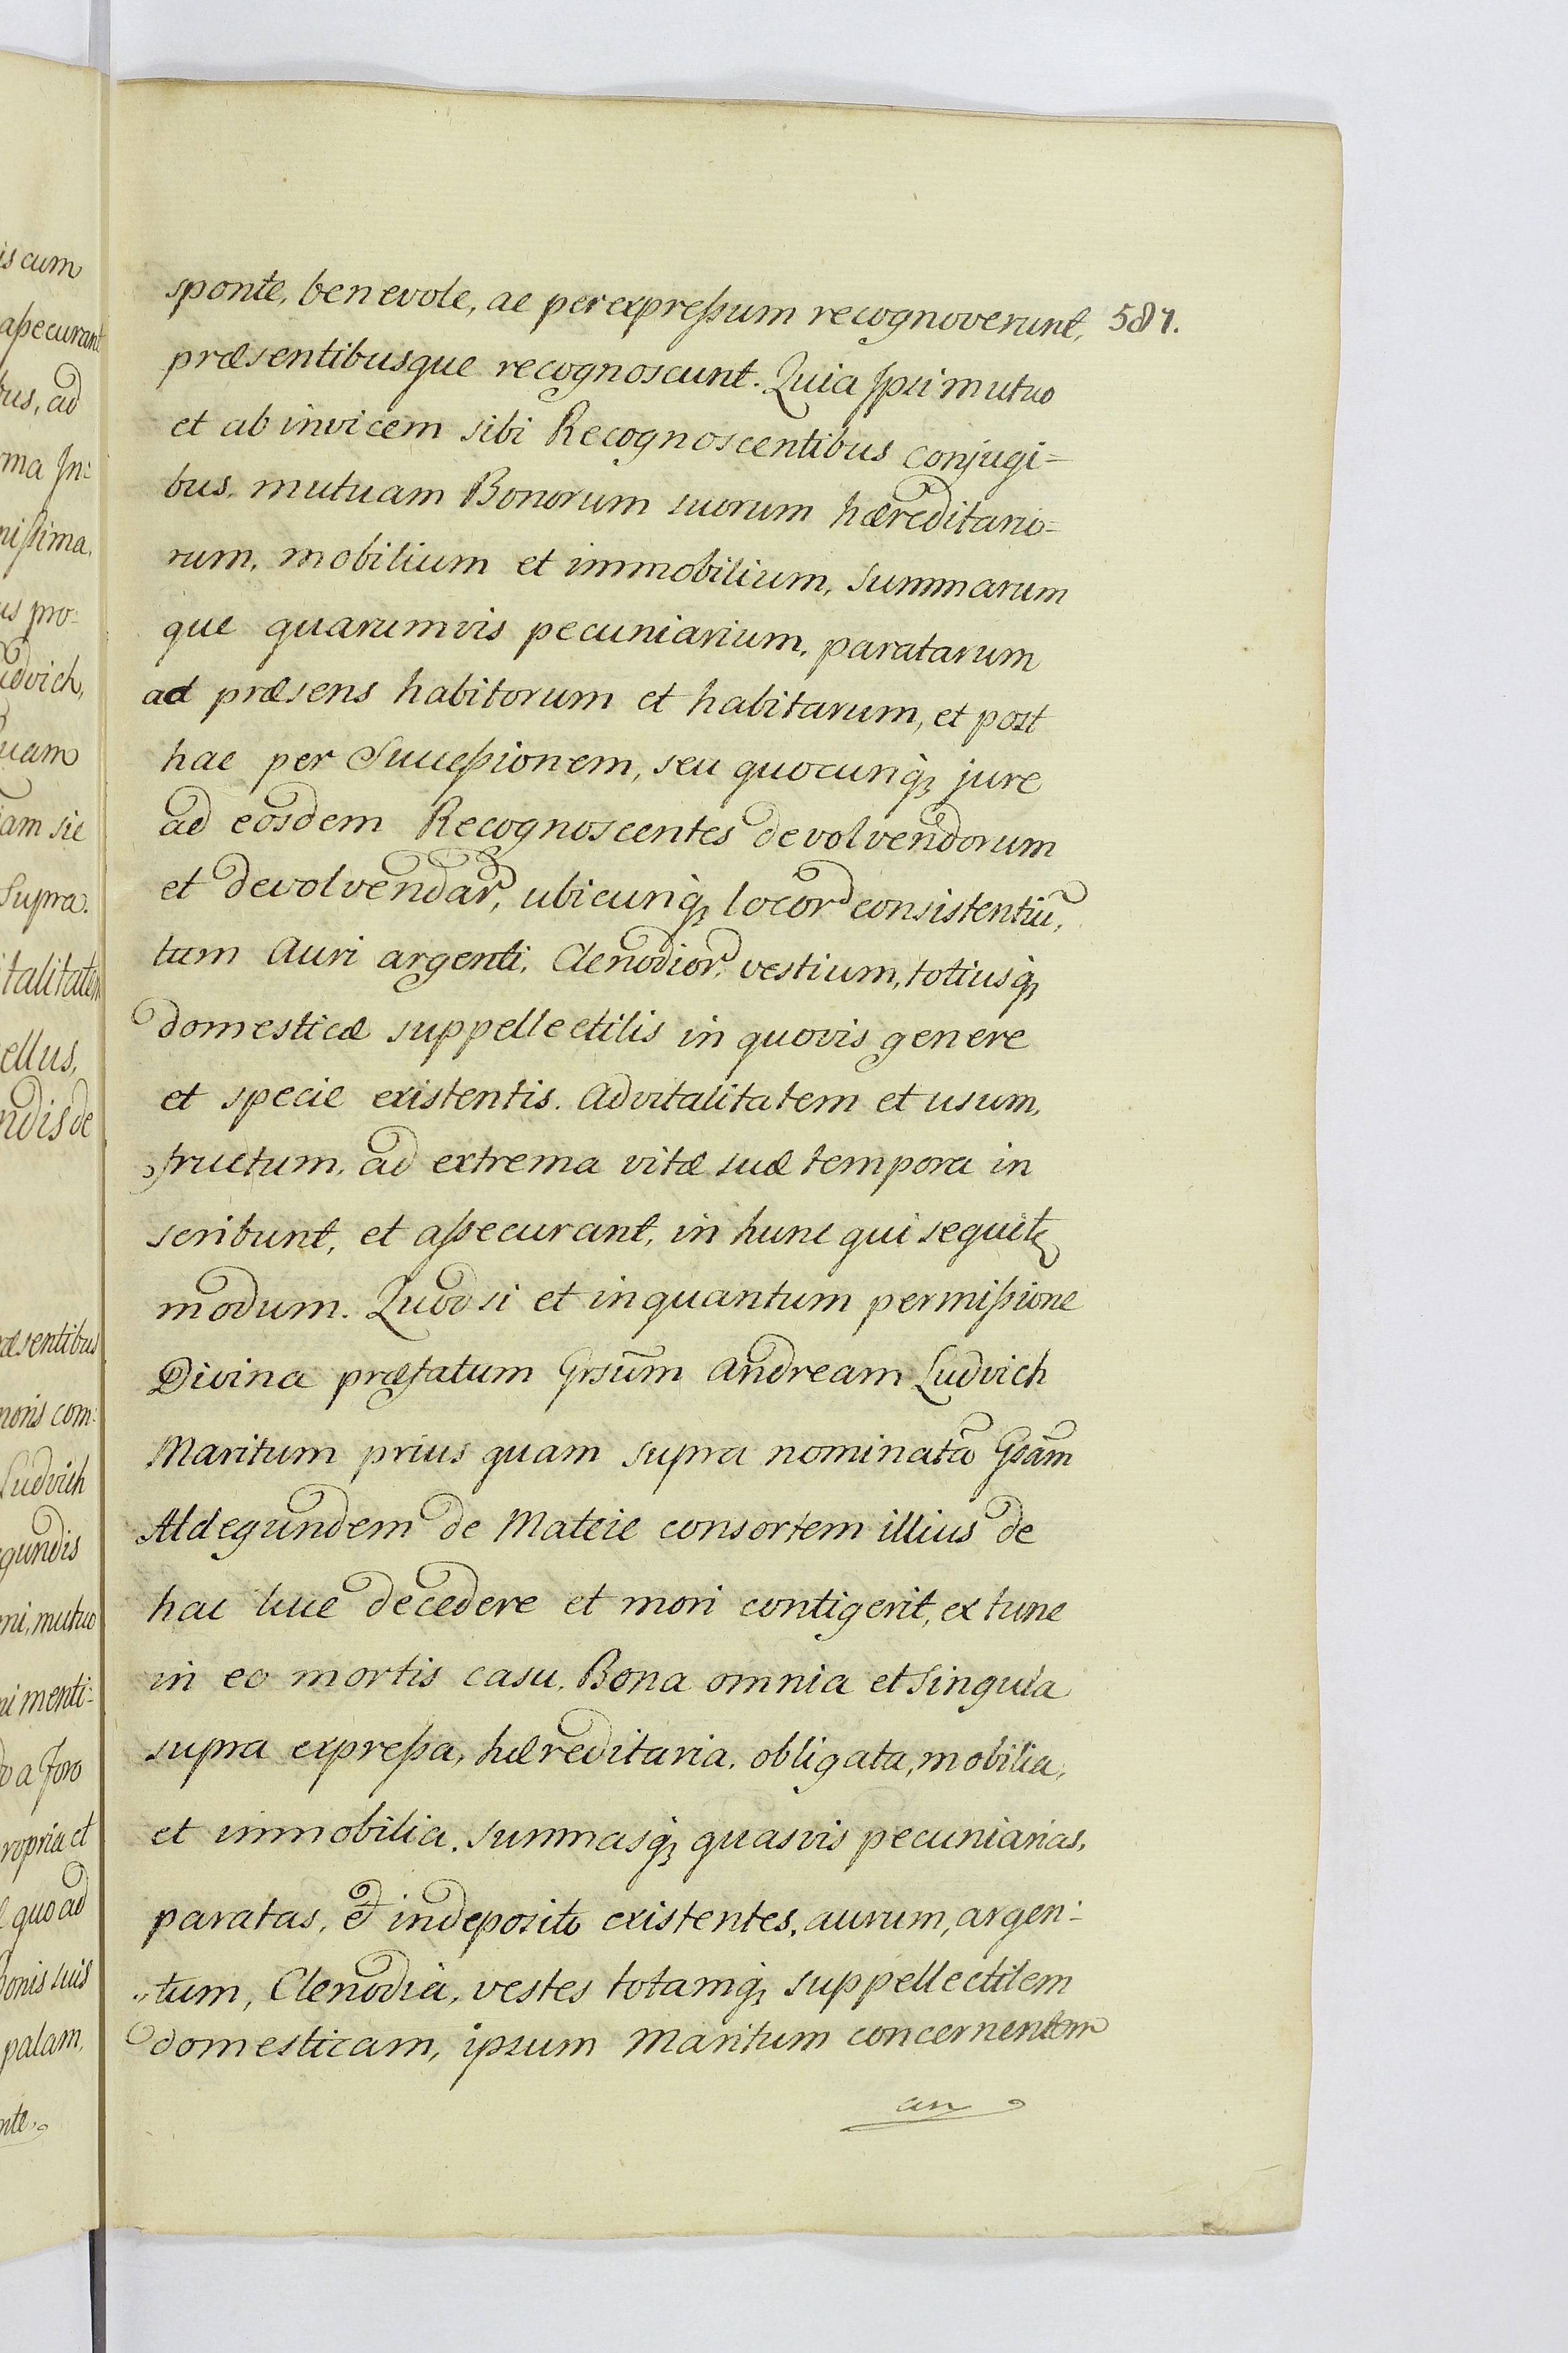 sponte, benevole, ac per expreßum recognoverunt, 581.
præsentibusque recognoscunt. Quia Ipsi mutuo
et ab invicem sibi Recognoscentibus conjugi=
bus, mutuam Bonorum suorum hæreditario=
rum, mobilium et immobilium, summarum
que quarumvis pecuniarium, paratarum
ad præsens habitorum et habitarum, et post
hac per Succeßionem, seu quocunq; jure
ad eosdem Recognoscentes devolvendorum
et devolvendar, ubicunq; locor consistentiũ,
tum Auri argenti, Clenodior, vestium, totiusq;
domesticæ suppellectilis in quovis genere
et specie existentis. Advitalitatem et usum,
fructum, ad extrema vitæ suæ tempora in
scribunt, et aßecurant, in hunc qui sequit
modum. Quod si et inquantum permißione
Divina præfatum Grsũm Andream Ludvich
Maritum prius quam supra nominatã Gsãm
Aldegundem de Mateie consortem illius de
hac luce decedere et mori contigerit, ex tunc
in eo mortis casu, Bona omnia et Singula
supra expreßa, hæreditaria, obligata, mobilia,
et immobilia, summasq; quasvis pecuniarias,
paratas, et in deposito existentes, aurum, argen=
"tum, Clenodia, vestes totamq; suppellectilem
domesticam, ipsum Maritum concernentem
an
is cum
aßecurant
bus, ad
ma In=
nißima,
us pro=
udvich,
uam
iam sic
Supra.
italitatem
ellus,
ndis de
æsentibus
noris com=
Ludvich
egundis
ni, mutuo
ni menti=
o a Foro
ropria et
quo ad
bonis suis
palam,
nte,